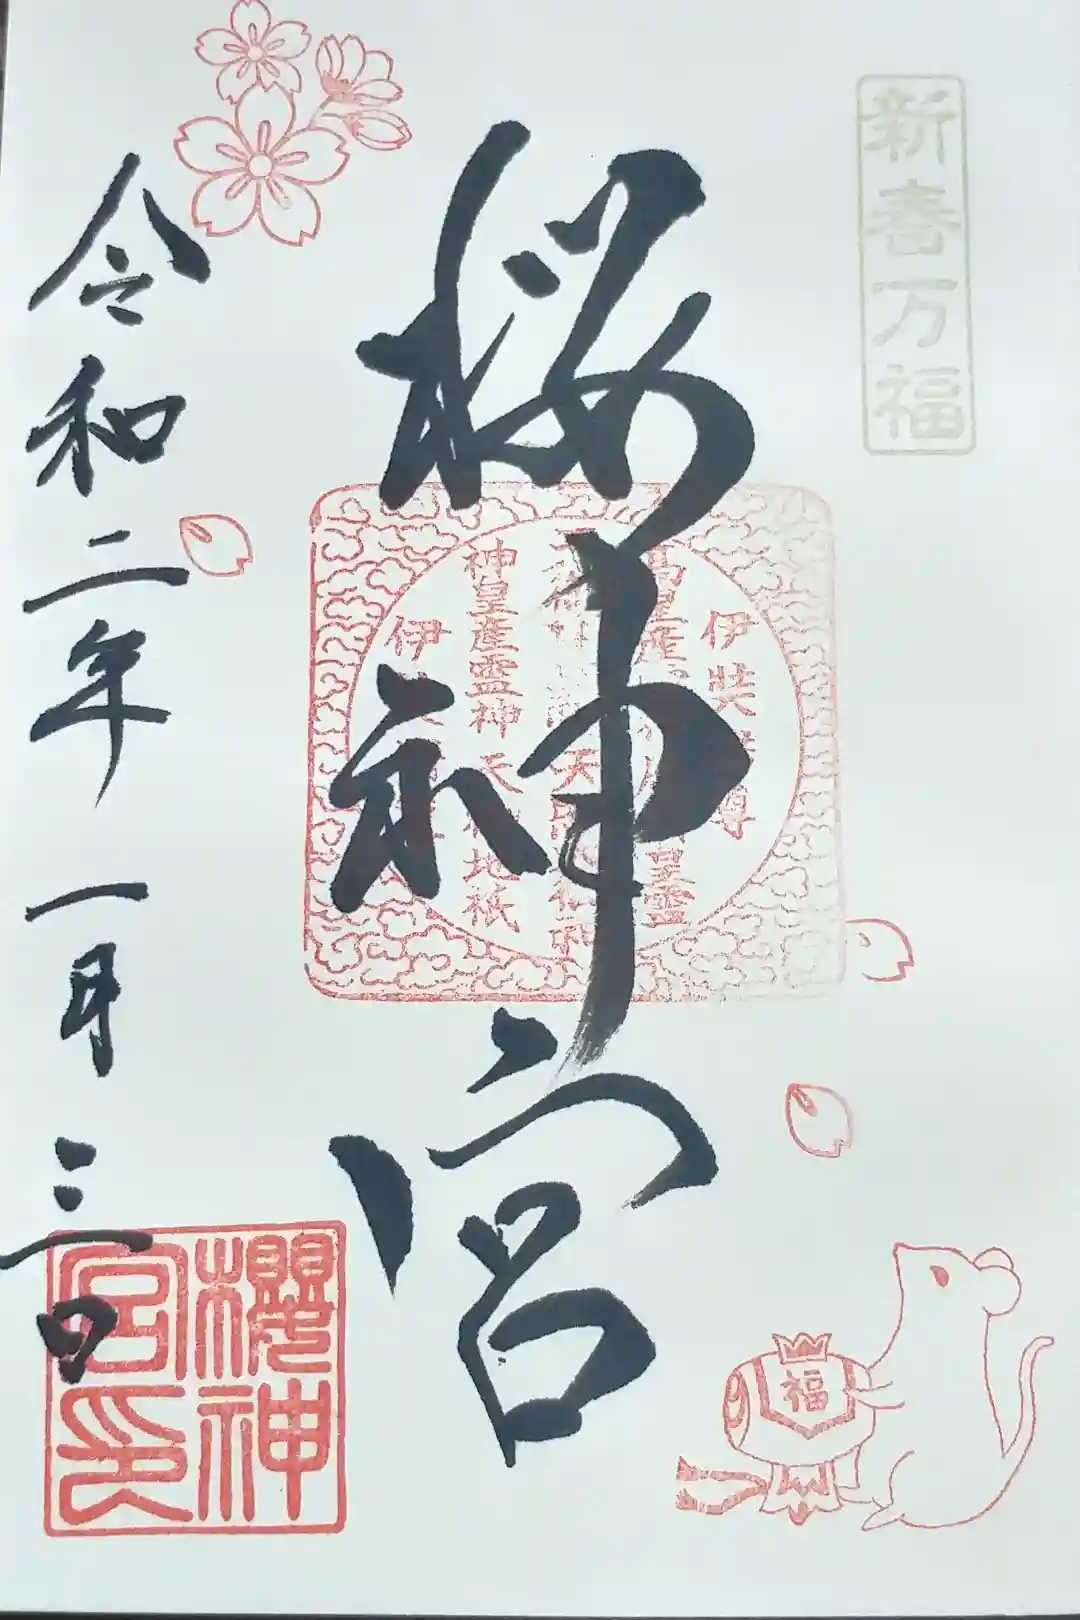 新春万福
桜神宮
神皇産霊神 天神地祇
令和二年一月三日
櫻神宮印
福